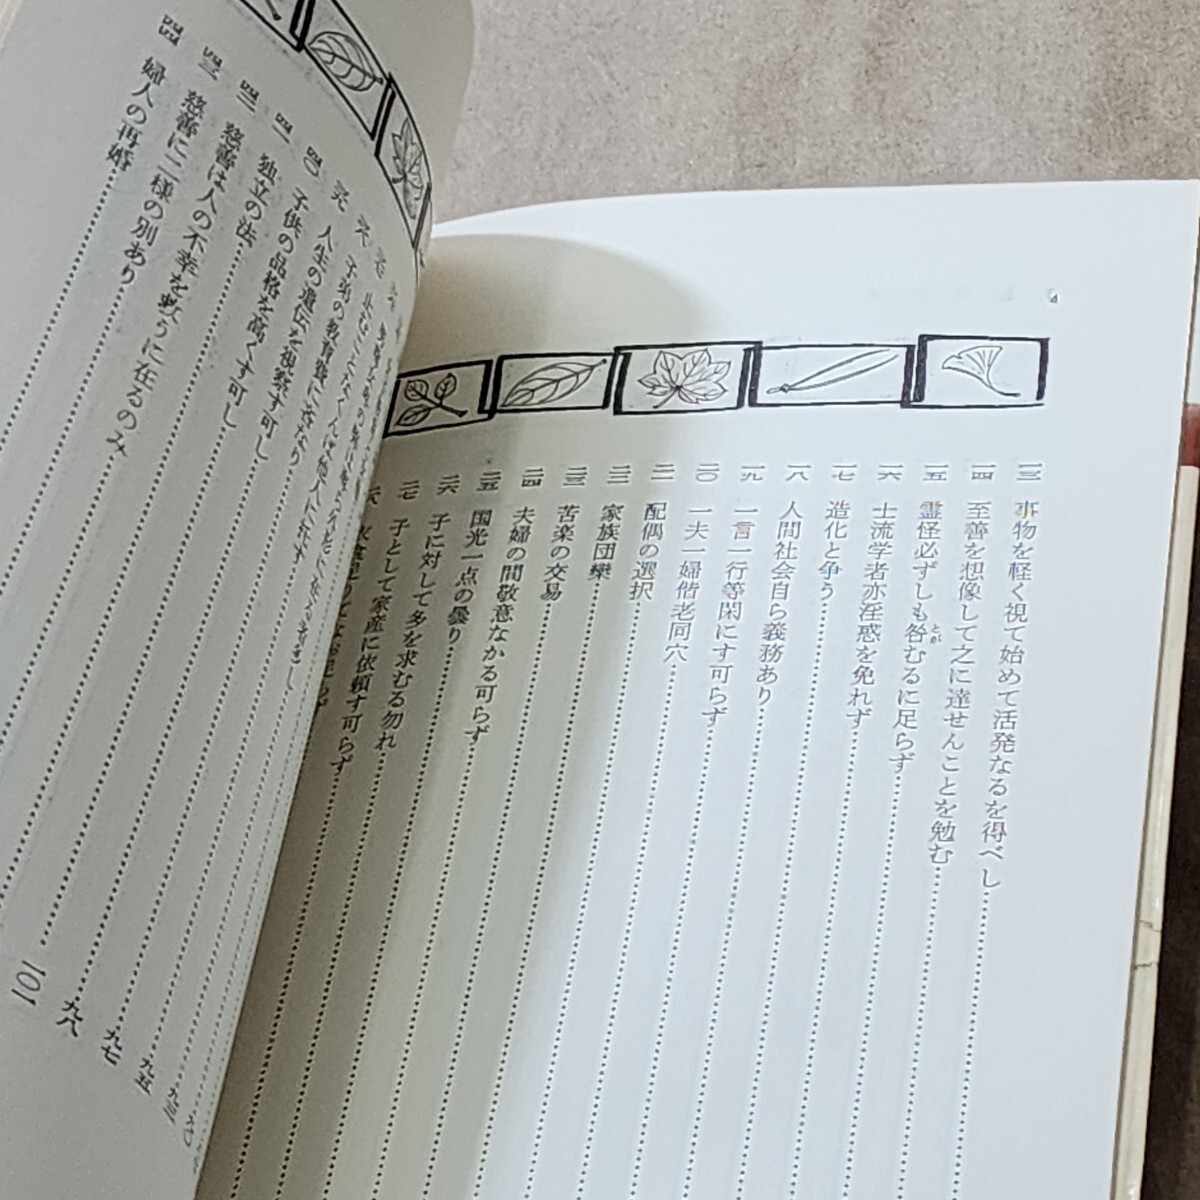 一三 事物を軽く視て始めて活発なるを得べし
一四 至善を想像して之に達せんことを勉む
一五 霊怪必ずしも咎むるに足らず
とが
一六 士流学者亦淫惑を免れず
一七 造化と争う
一八 人間社会自ら義務あり
一九 一言一行等閑にす可らず
二〇 一夫一婦偕老同穴
二一 配偶の選択
二二 家族団欒
二三 苦楽の交易
二四 夫婦の間敬意なかる可らず
二五 国光一点の曇り
二六 子に対して多を求むる勿れ
二七 子として家産に依頼す可らず
三八 子弟の教育費に吝なり
三九 人生の遺伝を視察す可し
四〇 子供の品格を高くす可し
四一 独立の法 九三
四二 慈善は人の不幸を救うに在るのみ 九五
四三 慈善に二様の別あり 九七
四四 婦人の再婚 九八
一〇一